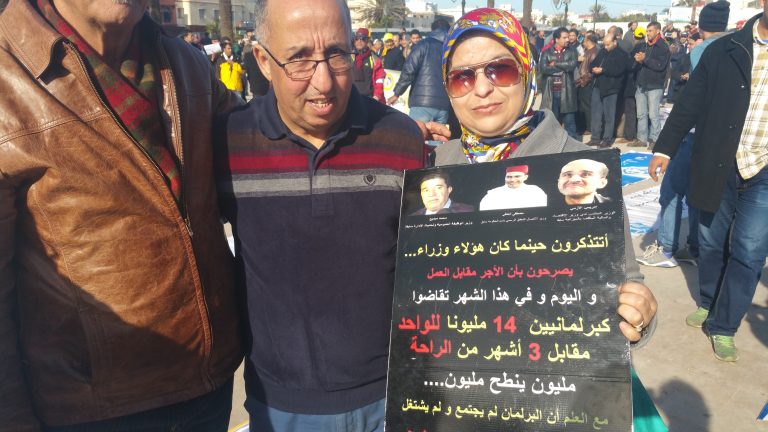 محمد مبديع
مصطفى الخلفي
إدريس الأزمي
أتتذكرون حينما كان هؤلاء وزراء...
يصرحون بأن الأجر مقابل العمل
و اليوم و في هذا الشهر تقاضوا
كبرلمانيين 14 مليونا للواحد
مقابل 3 أشهر من الراحة
مليون ينطح مليون....
مع العلم أن البرلمان لم يجتمع و لم يشتغل